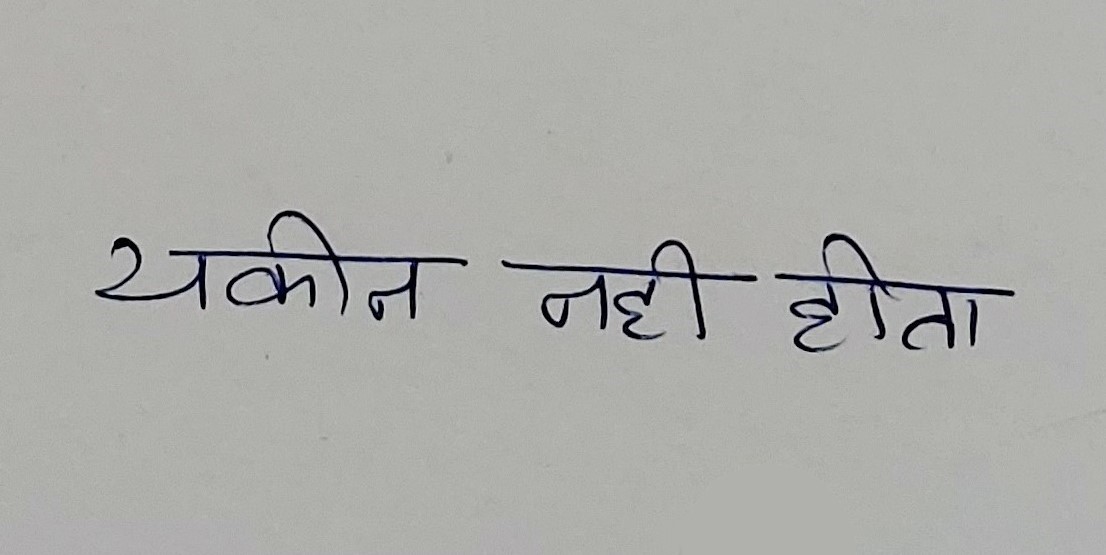 यकीन नही हीता